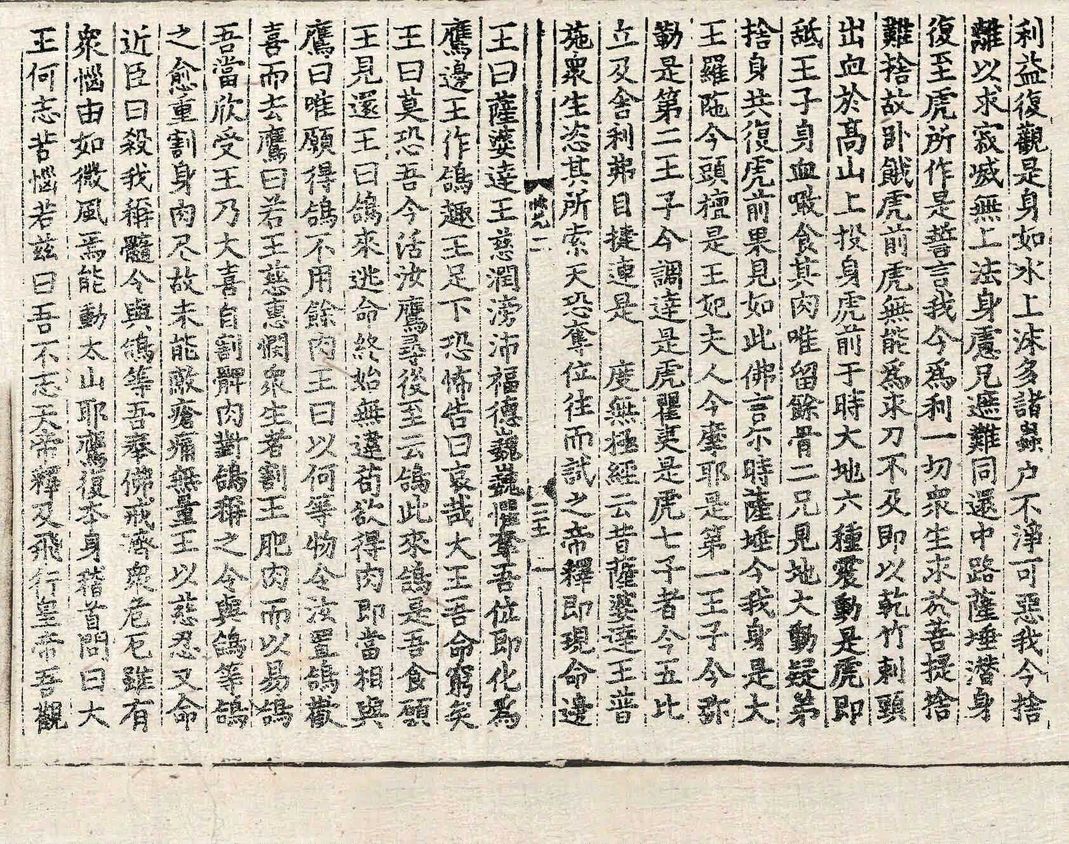 利益復觀是身如水上沫多諸虫户不淨可惡我今捨
離以求寂滅無上法身慮兄遮難同還中路薩埵潜身
復至虎所作是誓言我今為利一切衆生求於菩提捨
難捨故卧餓虎前虎無能為求刀不及即以乾竹刺頸
出血於髙山上投身虎前于時大地六種震動是虎即
舐王子身血噉食其肉唯留餘骨二兄見地大動疑弟
捨身共復虎前果見如此佛言尒時薩埵今我身是大
王羅陁今頭檀是王妃夫人今摩耶是第一王子今弥
勒是第二王子今調達是虎瞿夷是虎七子者今五比
丘及舎利弗目揵連是 度無極經云昔薩婆達王普
施衆生恣其所索天恐奪位往而試之帝釋即現命邊
二
三十五
王曰薩婆達王慈潤滂沛福德巍巍懼奪吾位即化為
鷹邊王作鴿趣王足下恐怖告曰哀哉大王吾命窮矣
王曰莫恐吾今活汝鷹尋後至云鴿此來鴿是吾食願
王見還王曰鴿來逃命終始無違苟欲得肉即當相與
鷹曰唯願得鴿不用餘肉王曰以何等物令汝置鴿歡
喜而去鷹曰若王慈惠憫衆生者割王肥肉而以易鴿
吾當欣受王乃大喜自割髀肉對鴿稱之令與鴿等鴿
之愈重割身肉尽故未能敵瘡痛無量王以慈忍又命
近臣曰殺我稱髓令與鴿等吾奉佛戒濟衆危厄雖有
衆惱由如微風焉能動太山耶鷹復本身稽首問曰大
王何志苦惱若兹曰吾不志天帝釋及飛行皇帝吾觀